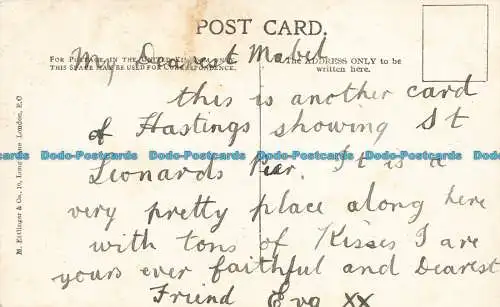 POST CARD.
FOR POSTAGE IN THE UNITED KINGDOM ONLY,
THIS SPACE MAY BE USED FOR CORRESPONDENCE.
The ADDRESS ONLY to be
written here.
My Dearest Mabel
this is another card
of Hastings showing St
Leonards Pier. It is a
very pretty place along here
with tons of Kisses I are
yours ever faithful and Dearest
Friend Eva XX
M. Ettlinger & Co., London, E.C
Dodo-Postcards Dodo-Postcards Dodo-Postcards Dodo-Postcards Dodo-Postcards